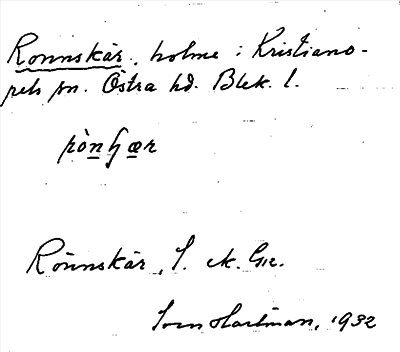 Ronnskär, holme i Kristiano-
pels sn. Östra hd. Blek. l.
rònʃær
Rönnskär, S. ek.
Sven Hartman, 1932